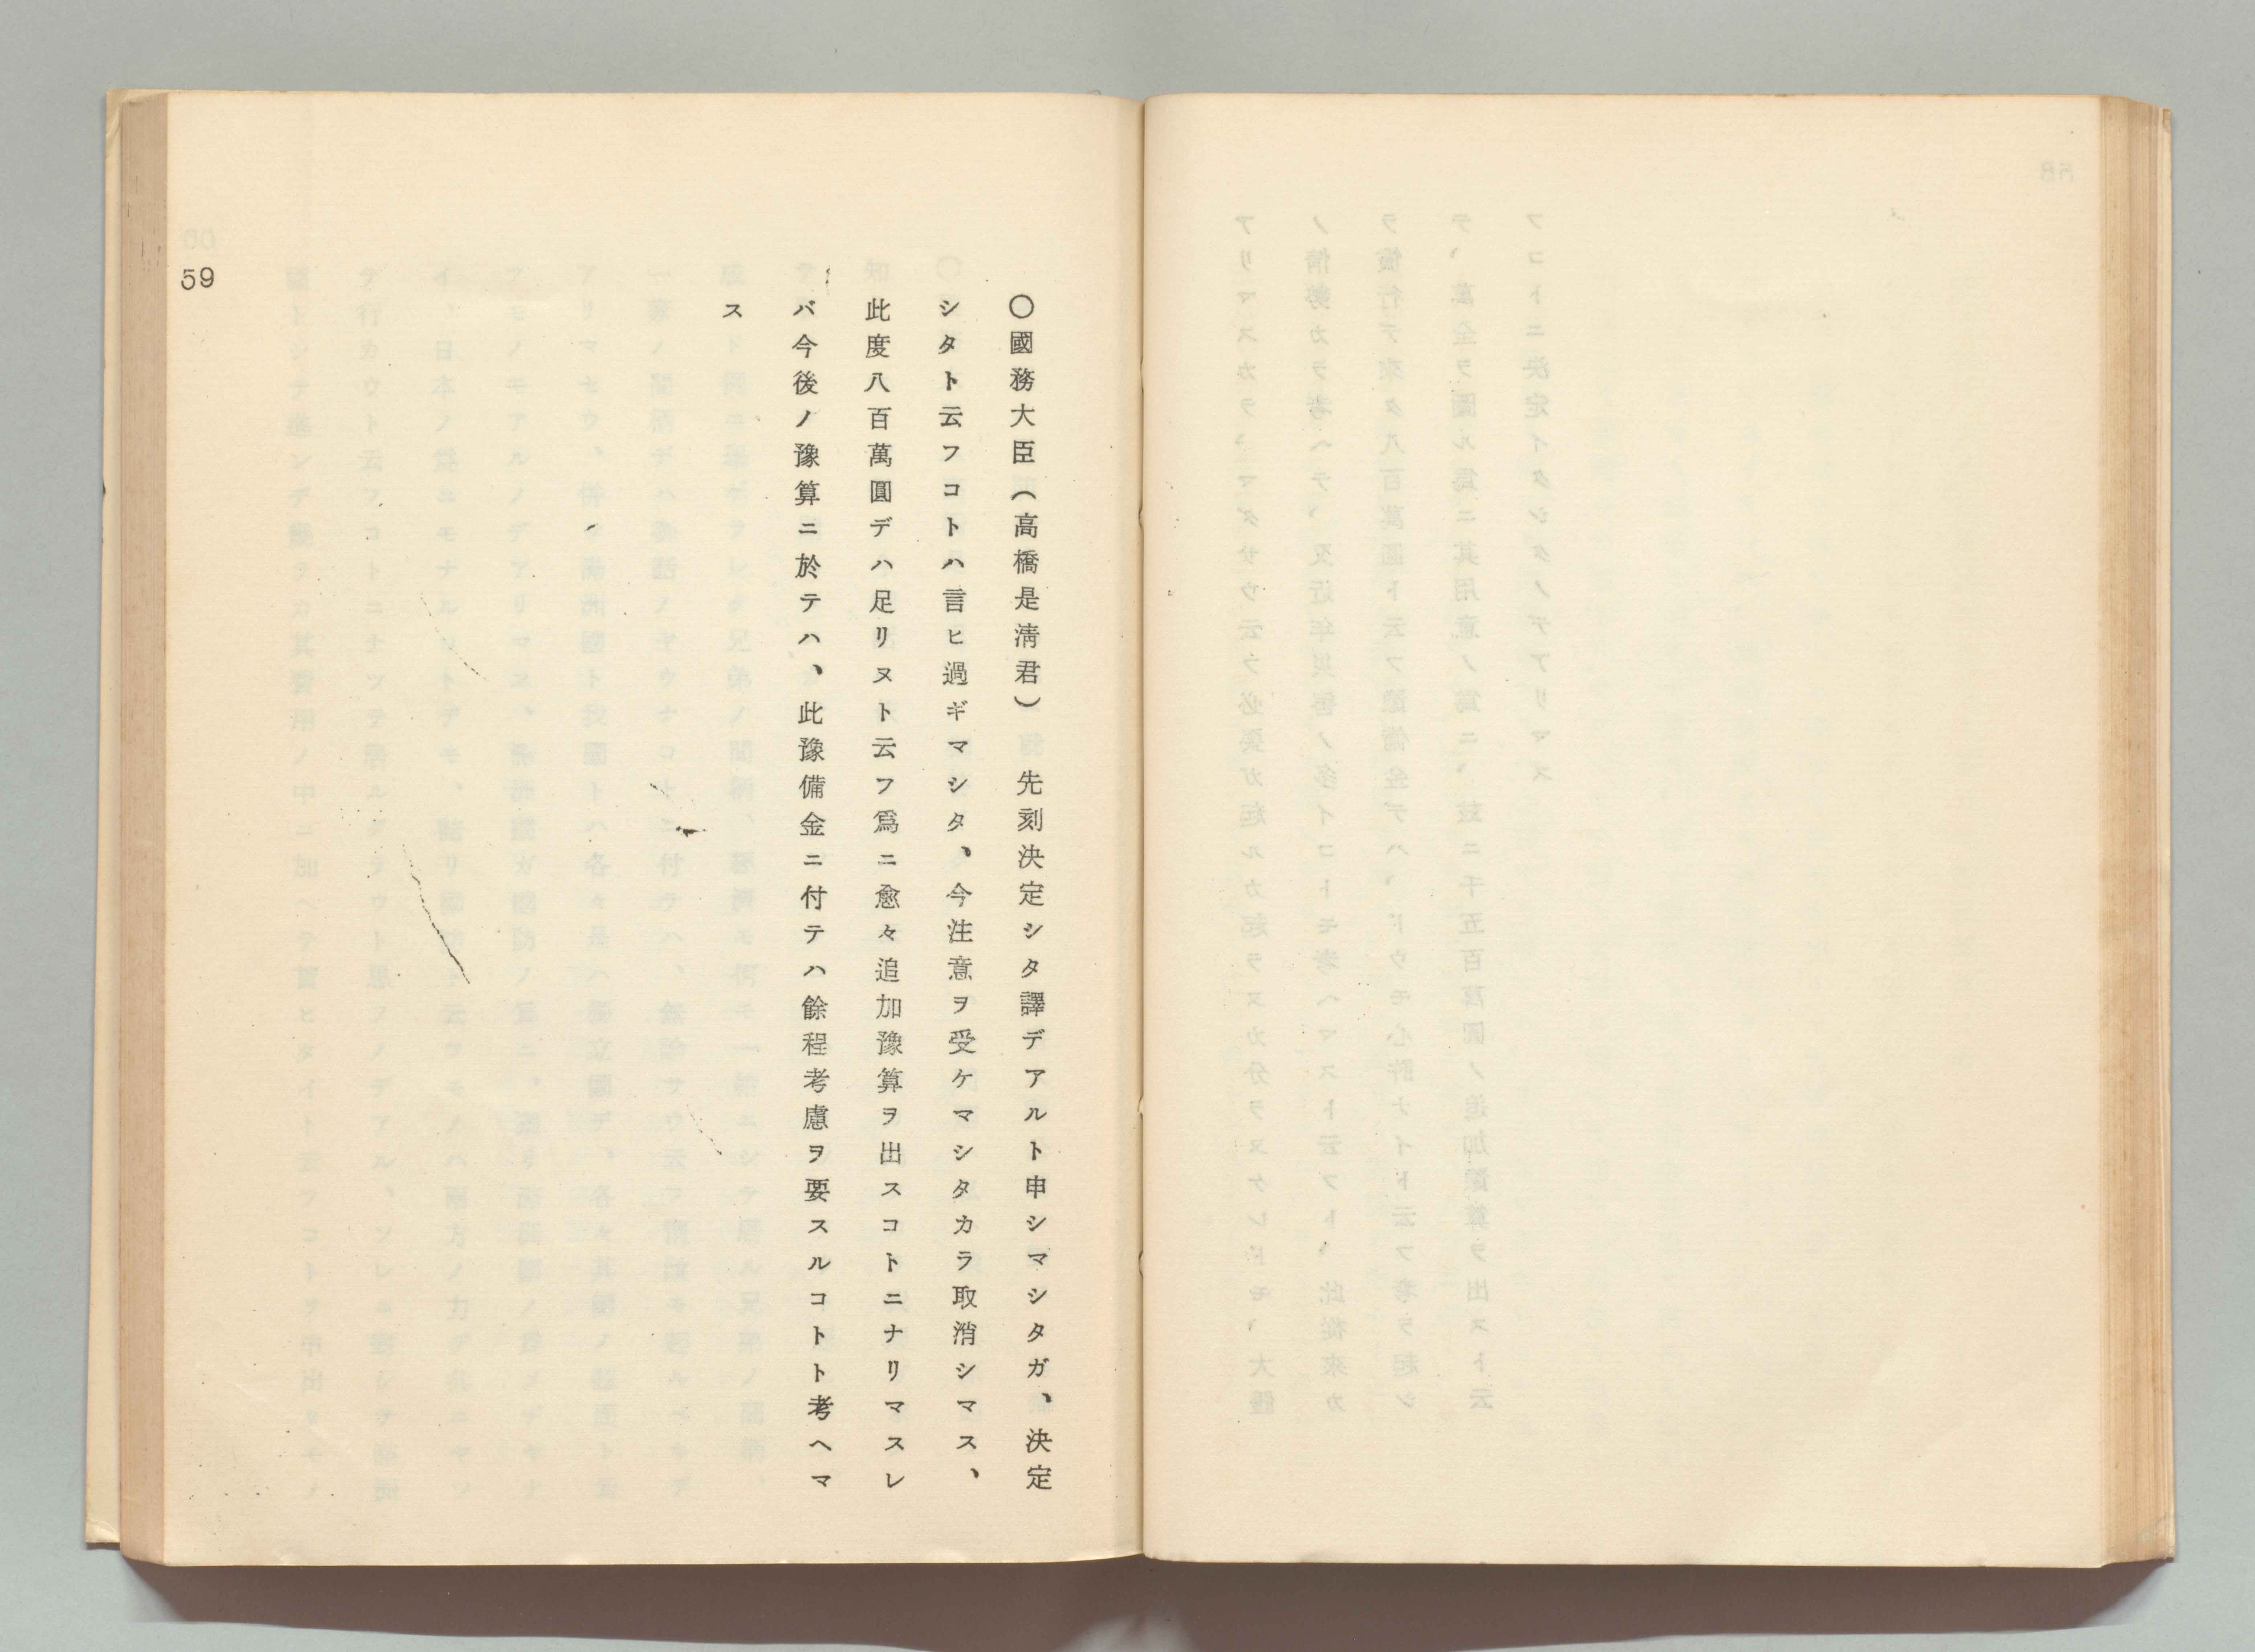 〇國務大臣(高橋是淸君) 先刻決定シタ譯デアルト申シマシタガ、決定
シタト云フコトハ言ヒ過ギマシタ、今注意ヲ受ケマシタカラ取消シマス、
此度八百萬圓デハ足リヌト云フ爲ニ愈々追加豫算ヲ出スコトニナリマスレ
バ今後ノ豫算ニ於テハ、此豫備金ニ付テハ餘程考慮ヲ要スルコトト考ヘマ
ス
59